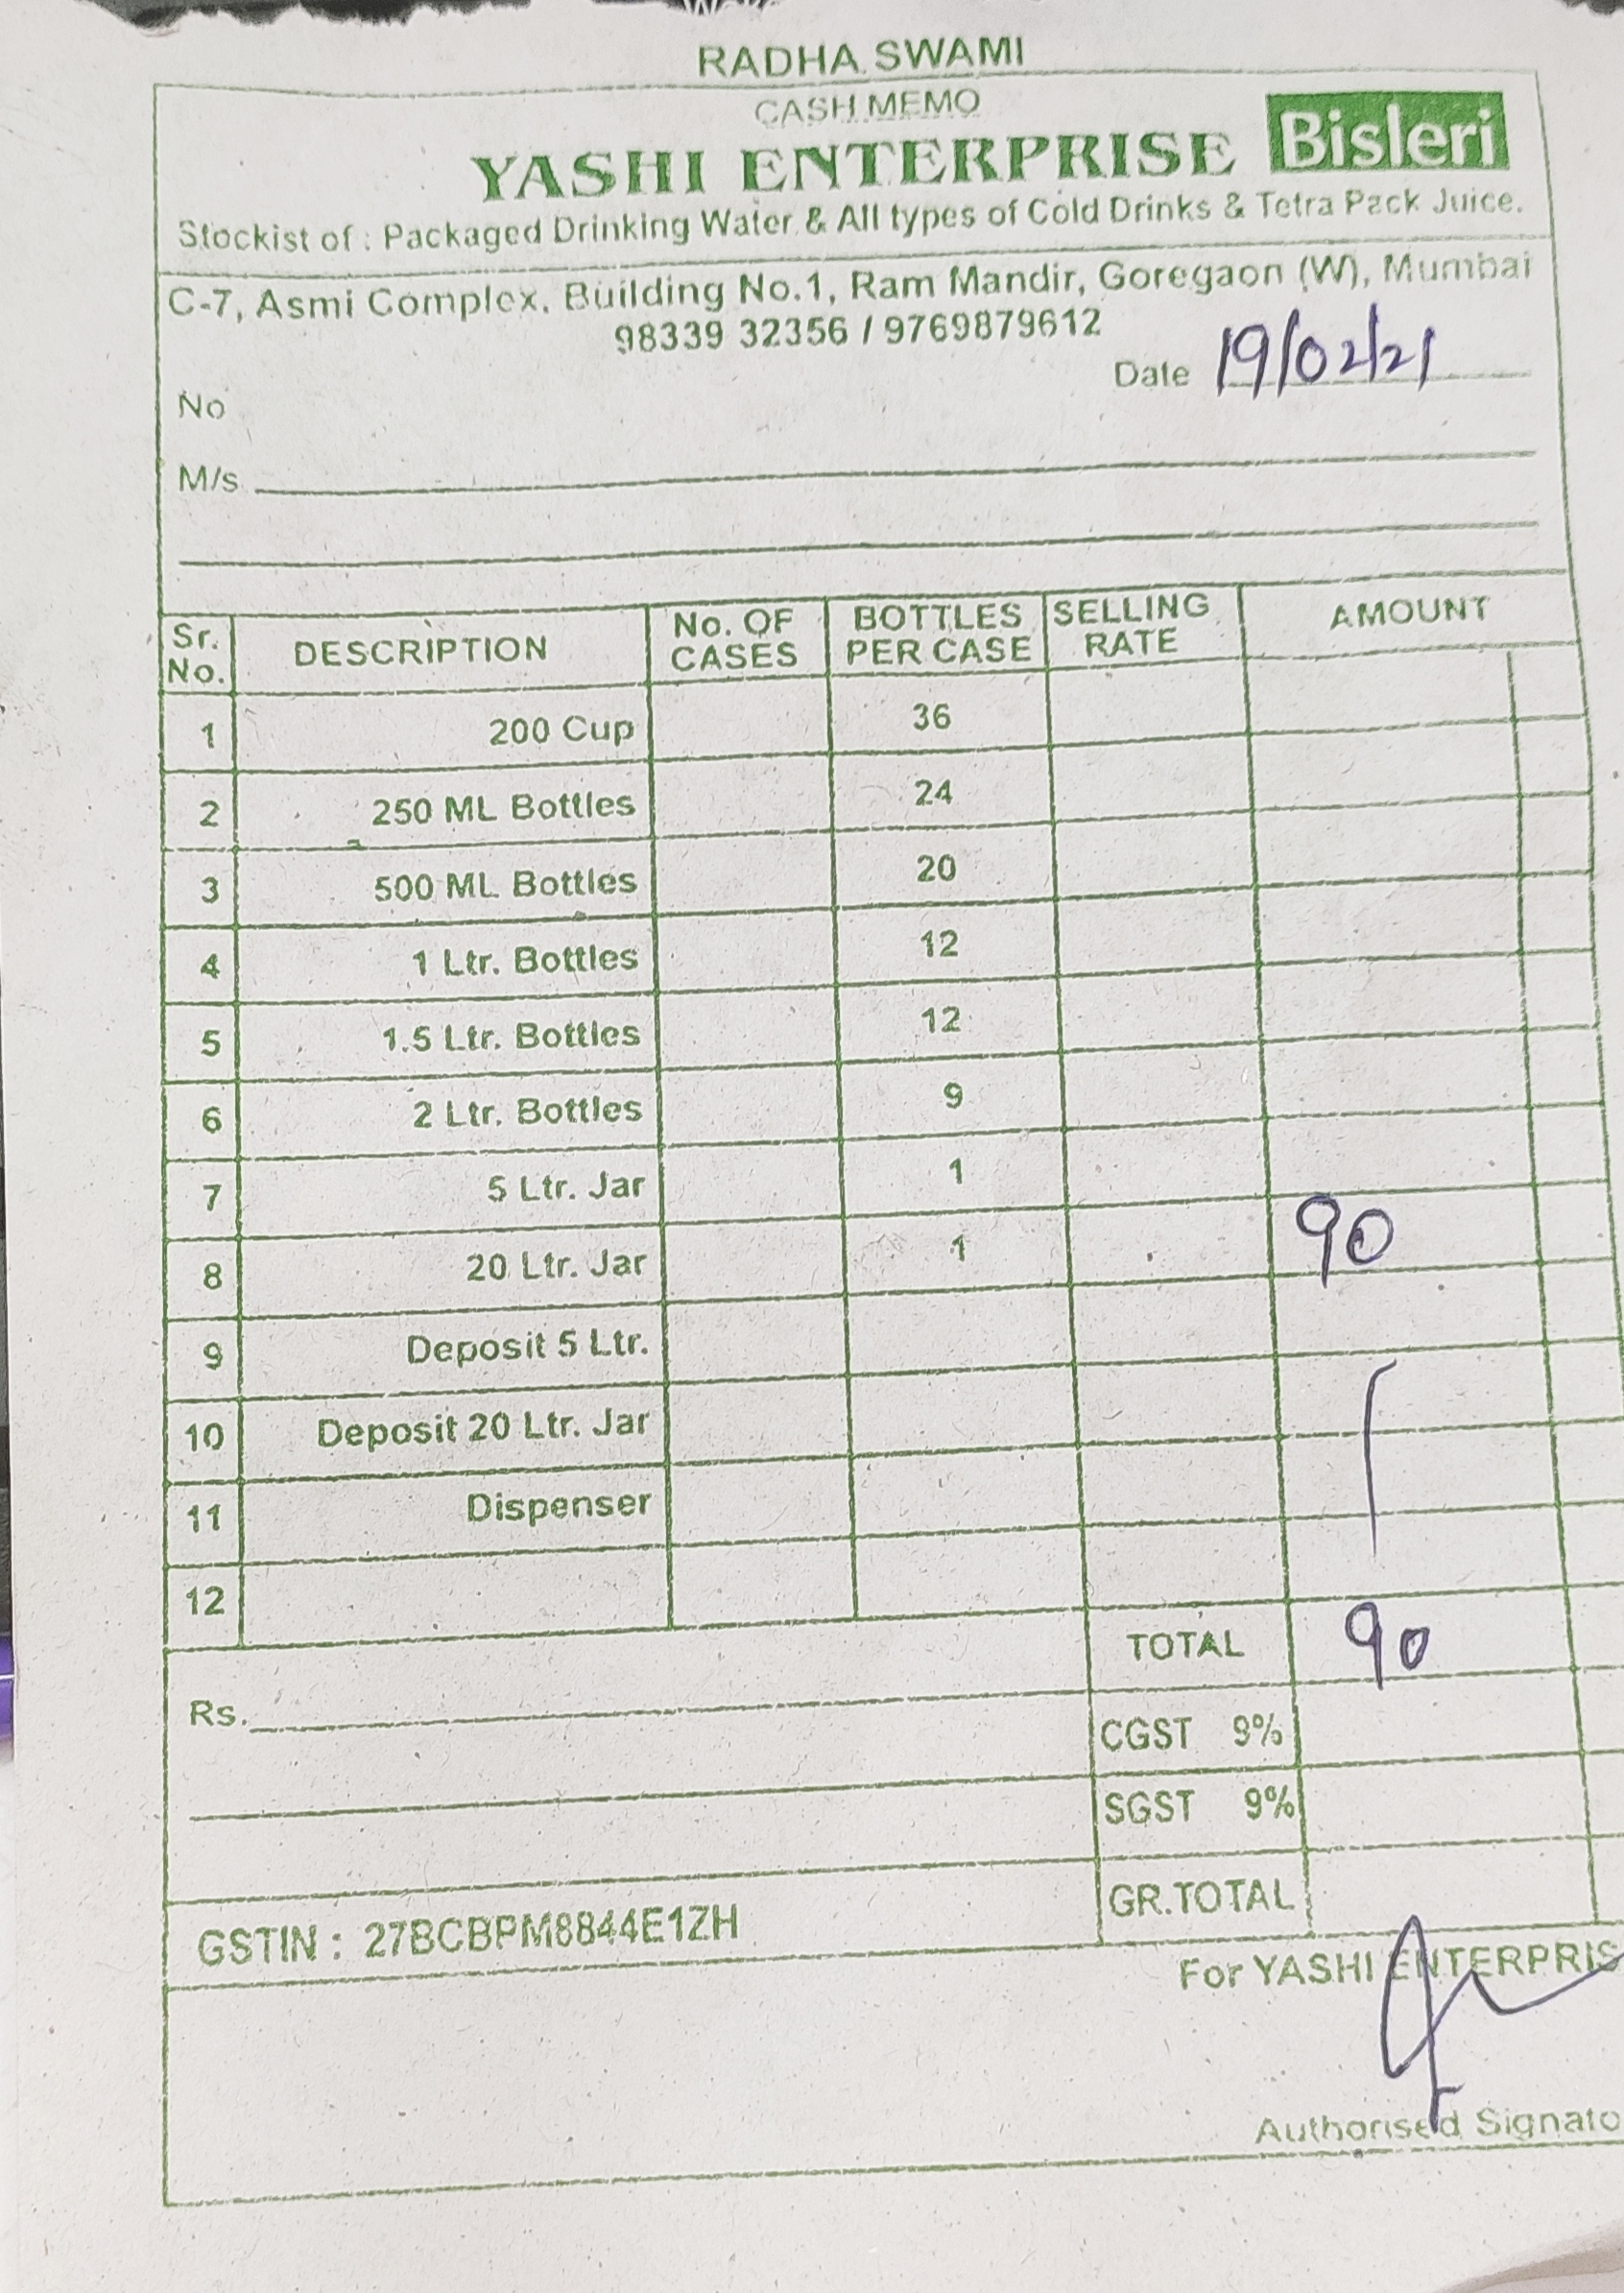 RADHA SWAMI
CASH MEMO
YASHI ENTERPRISE Bisleri
Stockist of : Packaged Drinking Water & All types of Cold Drinks & Tetra Pack Juice.
C-7, Asmi Complex, Building No.1, Ram Mandir, Goregaon (W), Mumbai
98339 32356 / 9769879612
Date 19/02/21
No
M/s
Sr. No. DESCRIPTION No. OF CASES BOTTLES PER CASE SELLING RATE AMOUNT
1 200 Cup 36
2 250 ML Bottles 24
3 500 ML Bottles 20
4 1 Ltr. Bottles 12
5 1.5 Ltr. Bottles 12
6 2 Ltr. Bottles 9
7 5 Ltr. Jar 1
8 20 Ltr. Jar 1 90
9 Deposit 5 Ltr.
10 Deposit 20 Ltr. Jar
11 Dispenser
12
TOTAL 90
Rs.
CGST 9%
SGST 9%
GR.TOTAL
GSTIN : 27BCBPM8844E1ZH
For YASHI ENTERPRIS
Authorised Signato